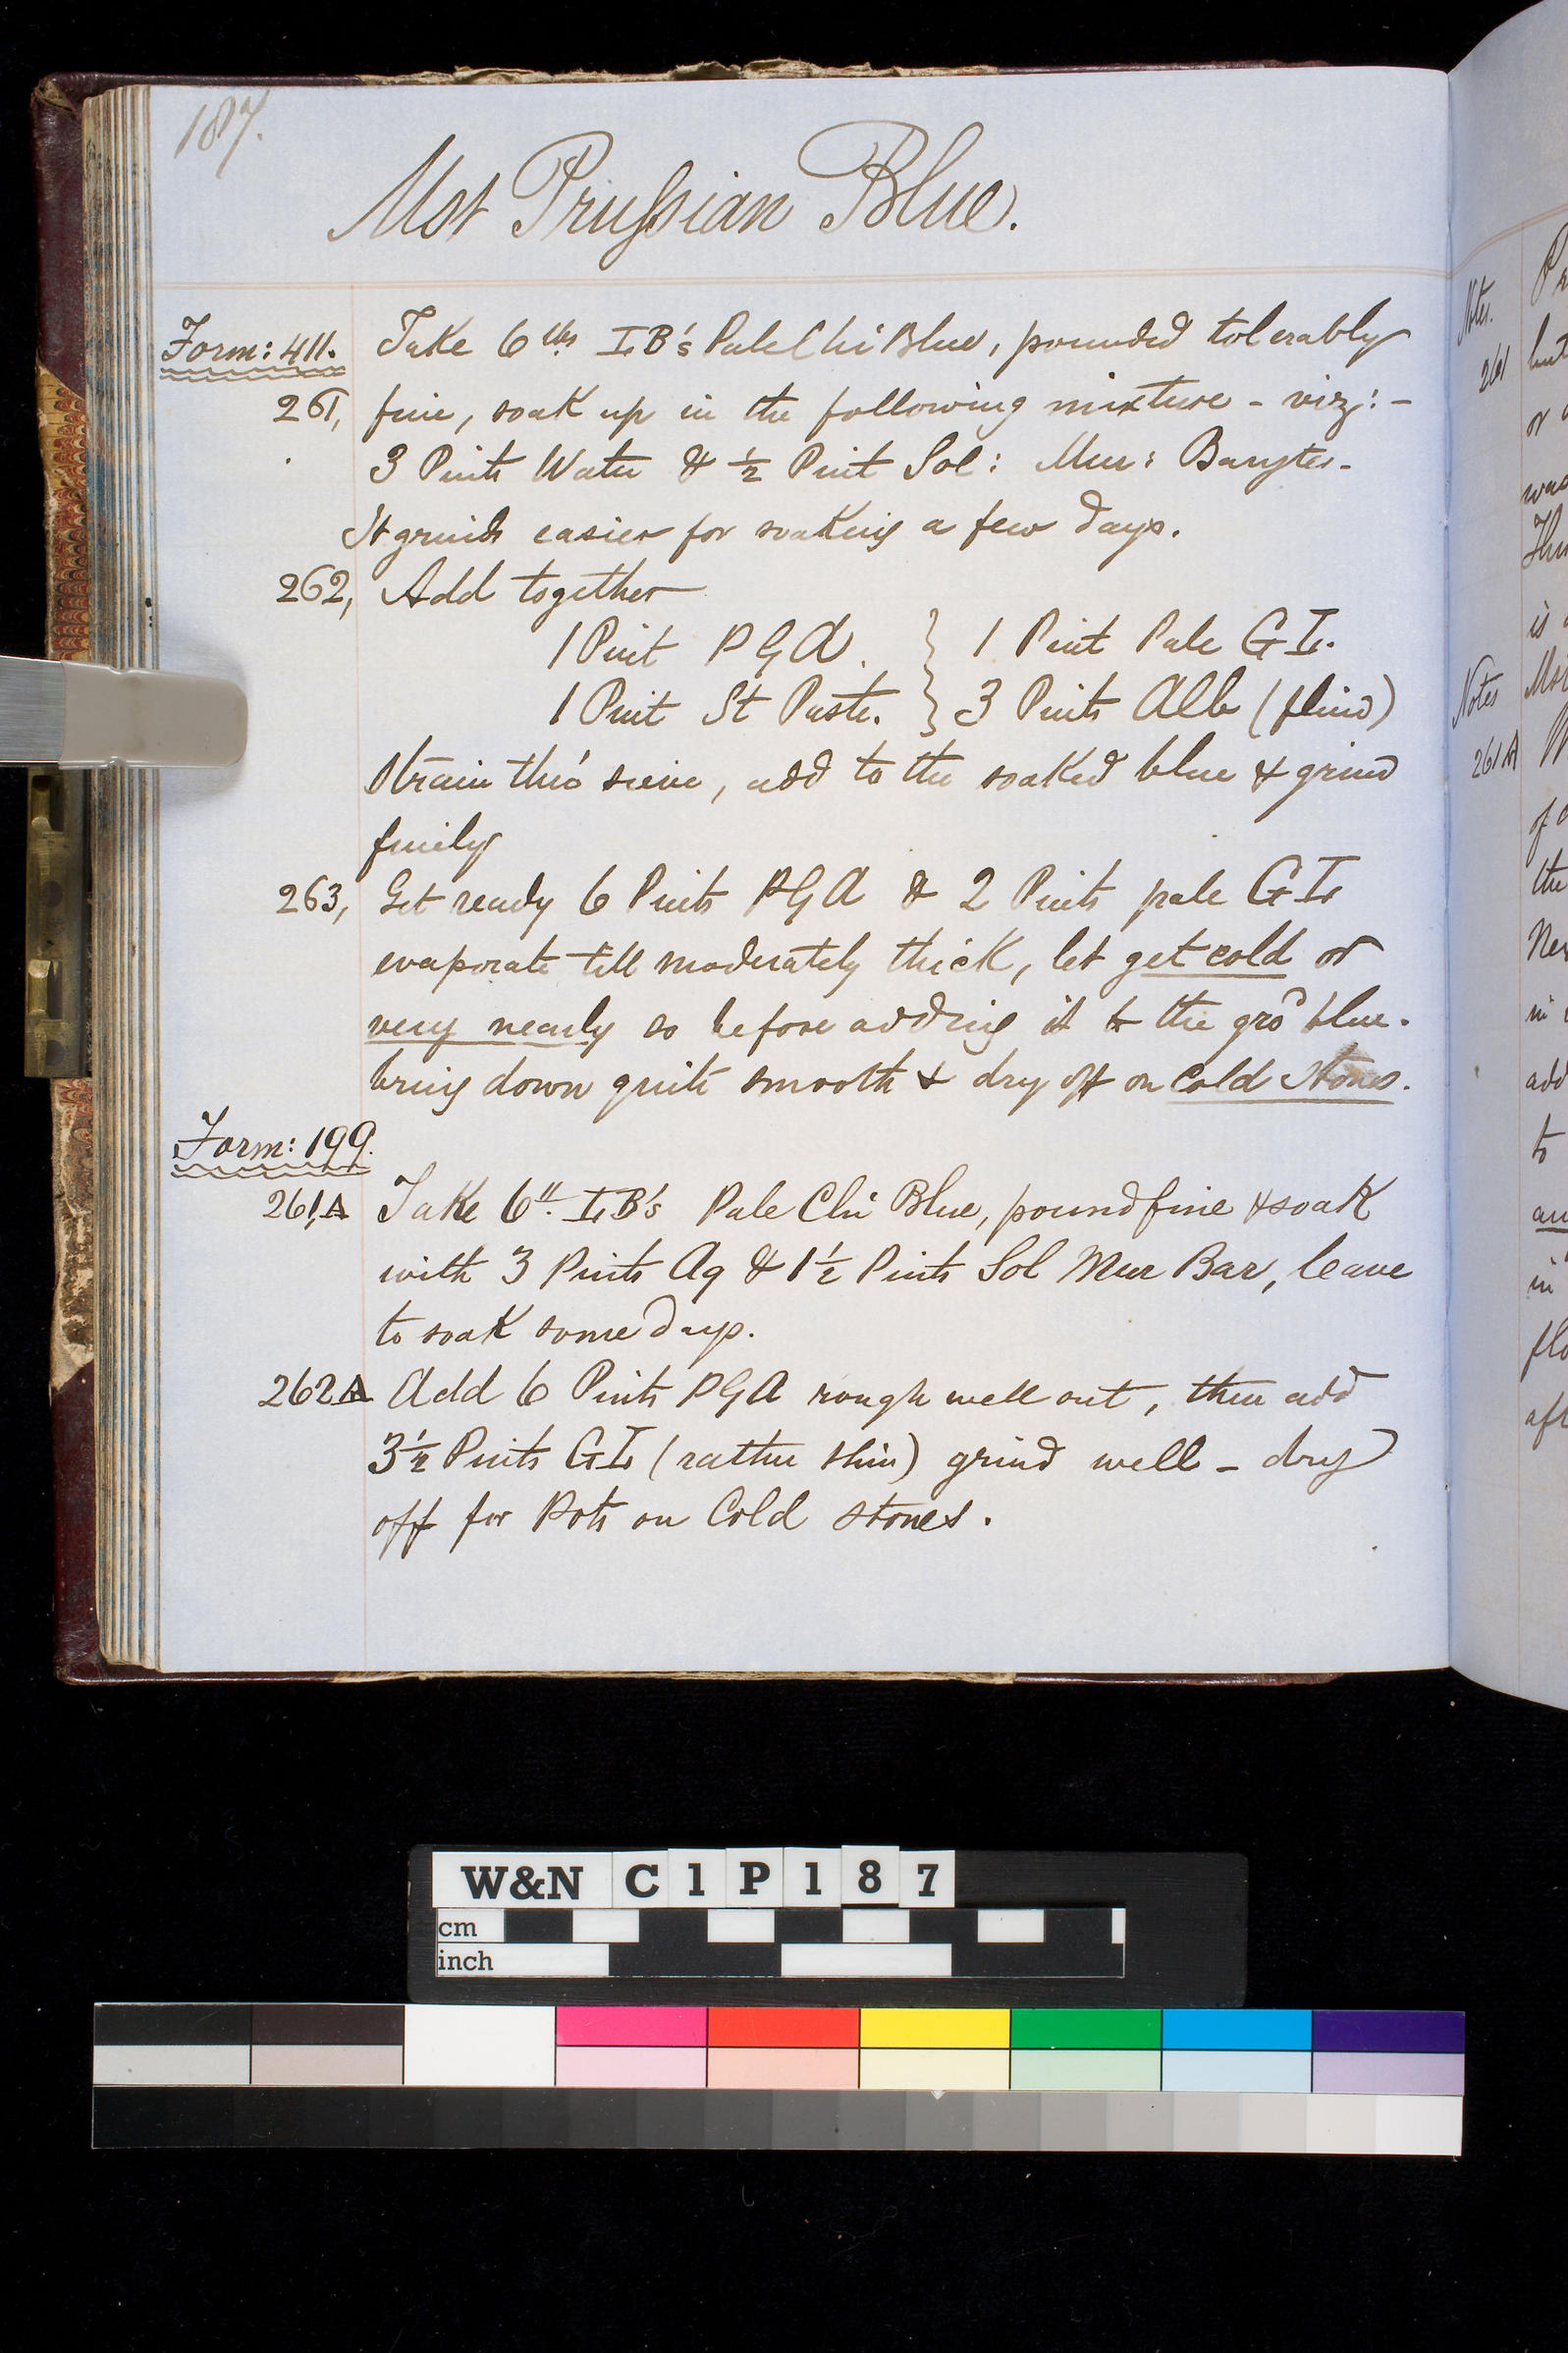 187.
Mst Prussian Blue.
Form: 411. Take 6 lbs LB's Pale Chi Blue, pounded tolerably
261, fine, soak up in the following mixture - viz: -
3 Pints Water & ½ Pint Sol: Mur: Barytes-
It grinds easier for soaking a few days.
262, Add together
1 Pint PGA. } 1 Pint Pale GL.
1 Pint St Paste. } 3 Pints Alb (fluid)
strain thro' sieve, add to the soaked blue & grind
finely
263, Get ready 6 Pints PGA & 2 Pints pale GL
evaporate till moderately thick, let get cold or
very nearly so before adding it to the gro'd blue.
bring down quite smooth & dry off on Cold Stones.
Form: 199.
261,A Take 6 lb. LB's Pale Chi Blue, pound fine & soak
with 3 Pints Aq & 1½ Pints Sol Mur Bar, leave
to soak some days.
262A Add 6 Pints PGA rough well out, then add
3½ Pints GL (rather thin) grind well - dry
off for Pots on Cold stones.
Notes.
261
but
or
was
is
Notes
261A
of
the
in
add
to
in
W&N C1P187
cm
inch